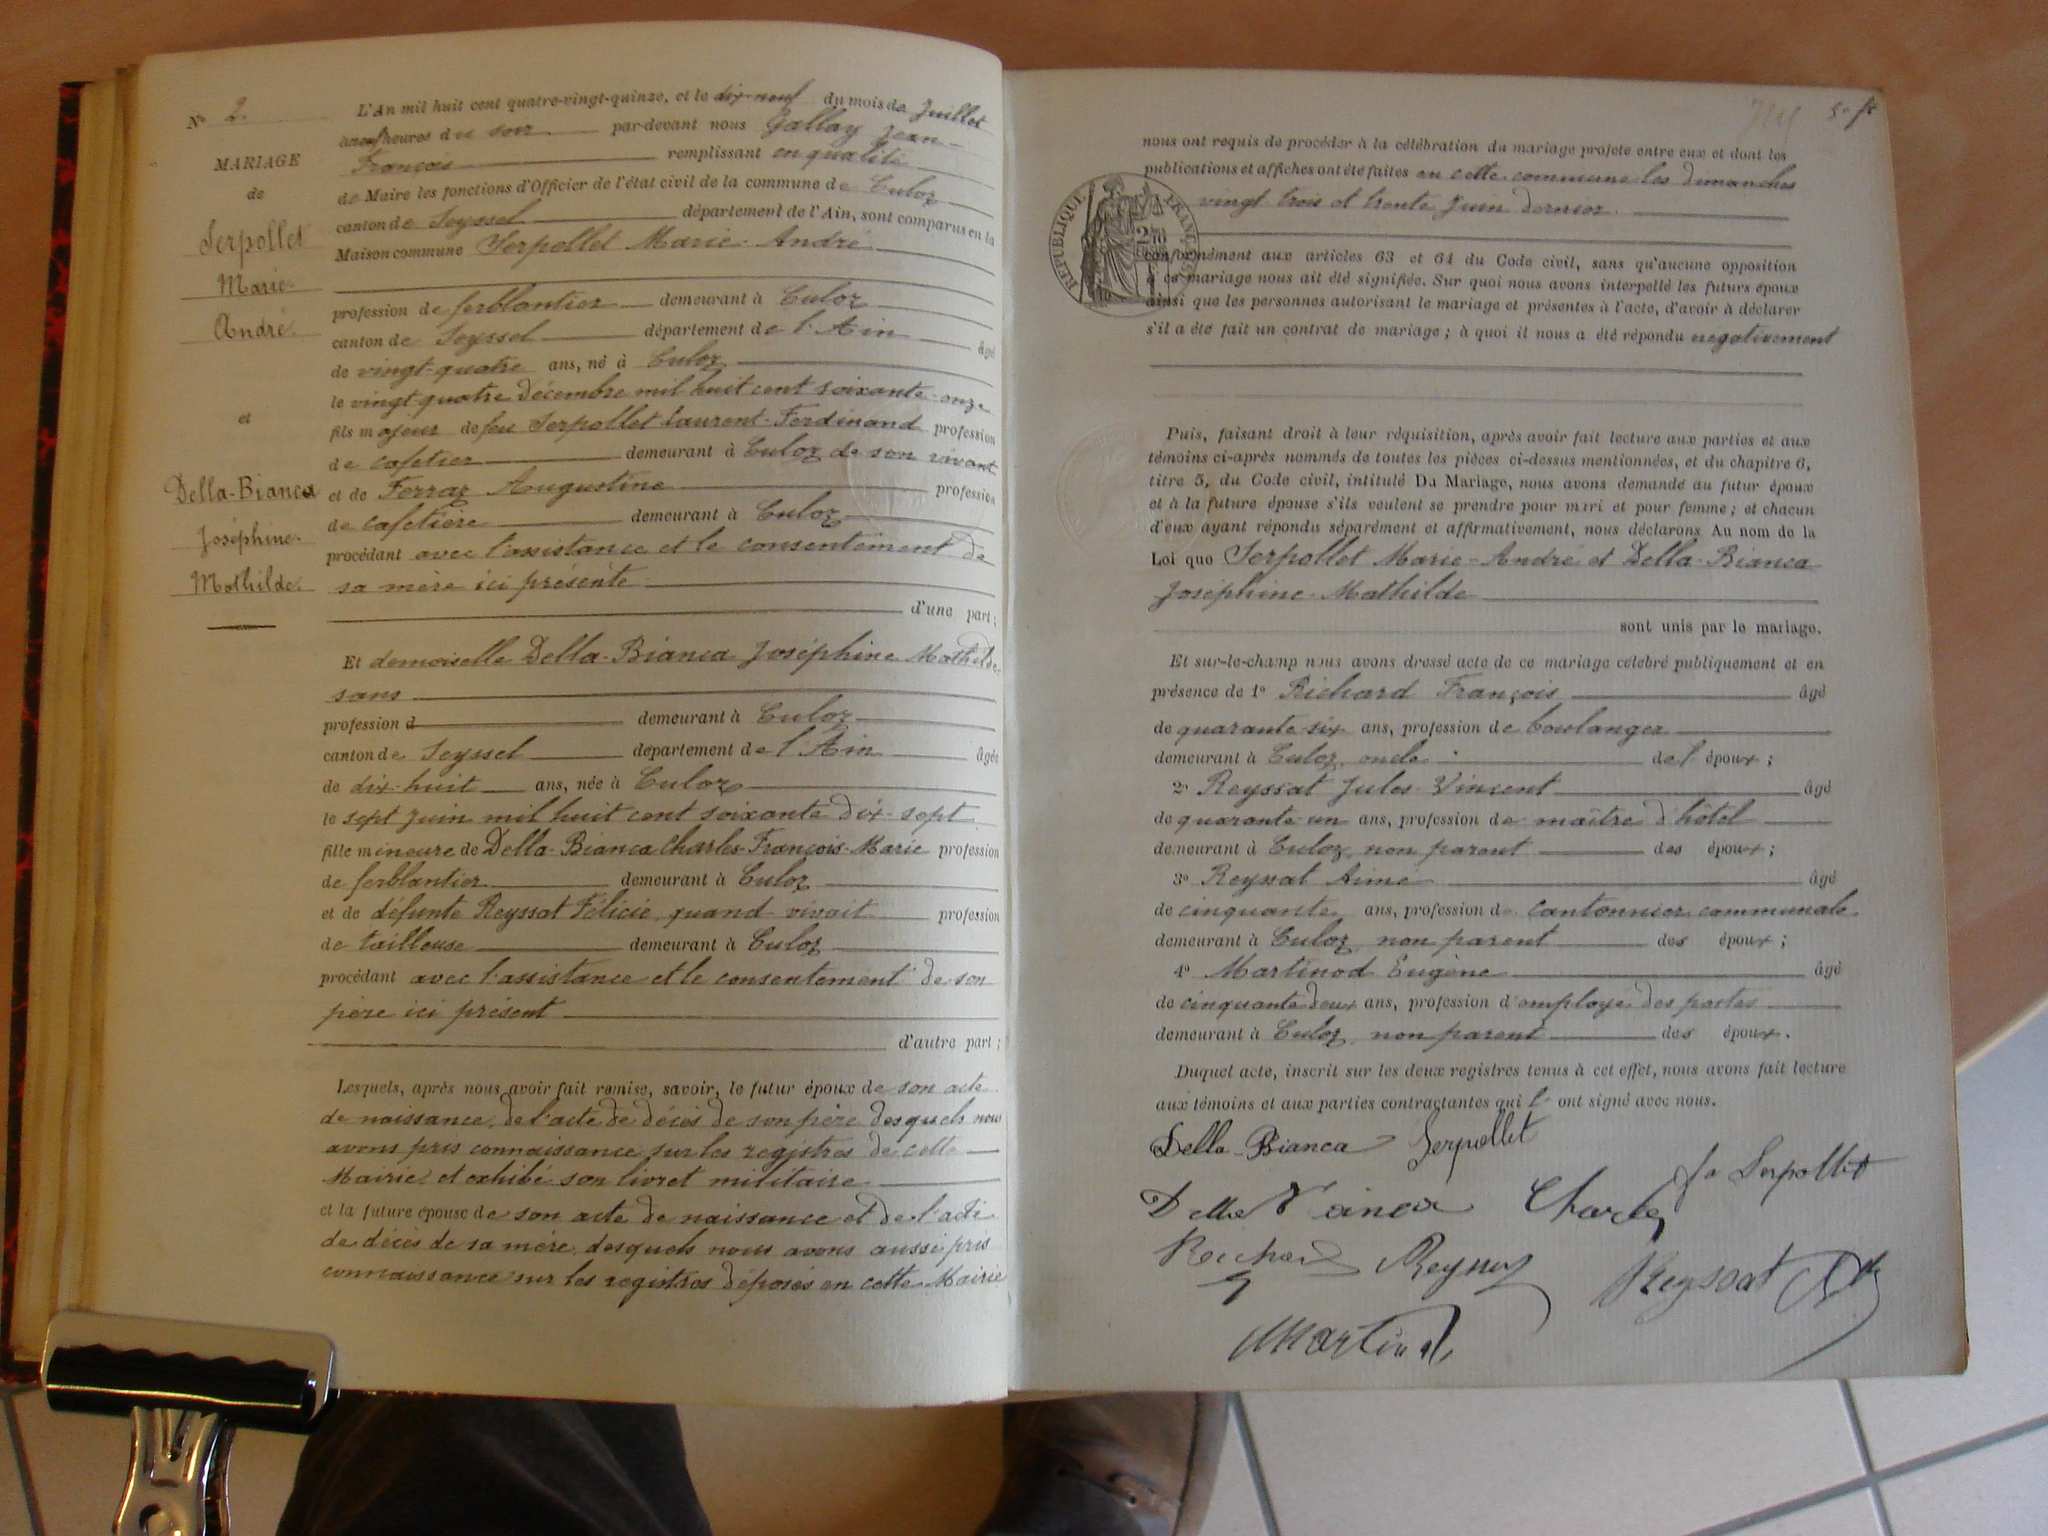 N° 2.
MARIAGE
de
Serpollet
Marie-
André.
et
Della-Bianca
Joséphine-
Mathilde.
L'An mil huit cent quatre-vingt-quinze, et le dix-neuf du mois de Juillet
heures du soir par-devant nous Gallay Jean-
François remplissant en qualité
de Maire les fonctions d'Officier de l'état civil de la commune de Culoz
canton de Seyssel département de l'Ain, sont comparus en la
Maison commune Serpollet Marie-André
profession de ferblantier demeurant à Culoz
canton de Seyssel département de l'Ain âgé
de vingt-quatre ans, né à Culoz
le vingt-quatre décembre mil huit cent soixante-onze
fils majeur de feu Serpollet Laurent-Ferdinand profession
de cafetier demeurant à Culoz de son vivant
et de Ferraz Augustine profession
de cafetière demeurant à Culoz
procédant avec l'assistance et le consentement de
sa mère ici présente
d'une part;
Et demoiselle Della-Bianca Joséphine Mathilde
sans
profession d demeurant à Culoz
canton de Seyssel département de l'Ain âgée
de dix-huit ans, née à Culoz
le sept Juin mil huit cent soixante dix-sept
fille mineure de Della-Bianca Charles-François-Marie profession
de ferblantier demeurant à Culoz
et de défunte Reyssat Félicie, quand vivait profession
de tailleuse demeurant à Culoz
procédant avec l'assistance et le consentement de son
père ici présent
d'autre part;
Lesquels, après nous avoir fait remise, savoir, le futur époux de son acte
de naissance, de l'acte de décès de son père desquels nous
avons pris connaissance sur les registres de cette
Mairie et exhibé son livret militaire
et la future épouse de son acte de naissance et de l'acte
de décès de sa mère, desquels nous avons aussi pris
connaissance sur les registres déposés en cette Mairie
nous ont requis de procéder à la célébration du mariage projeté entre eux et dont les
publications et affiches ont été faites en cette commune les dimanches
vingt trois et trente Juin dernier.
RÉPUBLIQUE FRANÇAISE
conformément aux articles 63 et 64 du Code civil, sans qu'aucune opposition
à ce mariage nous ait été signifiée. Sur quoi nous avons interpellé les futurs époux
ainsi que les personnes autorisant le mariage et présentes à l'acte, d'avoir à déclarer
s'il a été fait un contrat de mariage; à quoi il nous a été répondu négativement
Puis, faisant droit à leur réquisition, après avoir fait lecture aux parties et aux
témoins ci-après nommés de toutes les pièces ci-dessus mentionnées, et du chapitre 6,
titre 5, du Code civil, intitulé Du Mariage, nous avons demandé au futur époux
et à la future épouse s'ils veulent se prendre pour mari et pour femme; et chacun
d'eux ayant répondu séparément et affirmativement, nous déclarons Au nom de la
Loi que Serpollet Marie-André et Della-Bianca
Joséphine-Mathilde
sont unis par le mariage.
Et sur-le-champ nous avons dressé acte de ce mariage célébré publiquement et en
présence de 1° Richard François âgé
de quarante-six ans, profession de boulanger
demeurant à Culoz, oncle de l'époux;
2° Reyssat Jules-Vincent âgé
de quarante-un ans, profession de maître d'hôtel
demeurant à Culoz, non parent des époux;
3° Reyssat Aimé âgé
de cinquante ans, profession de cantonnier communale
demeurant à Culoz, non parent des époux;
4° Martinod Eugène âgé
de cinquante deux ans, profession d'employé des postes
demeurant à Culoz, non parent des époux.
Duquel acte, inscrit sur les deux registres tenus à cet effet, nous avons fait lecture
aux témoins et aux parties contractantes qui l' ont signé avec nous.
Della-Bianca Serpollet
Serpollet
Charles
Richard
Reyssat